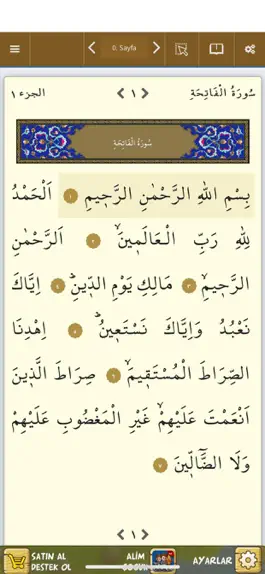 0. Sayfa
سُورَةُ الْفَاتِحَةِ ‹ ١ › الجزء ١
سُورَةُ الْفَاتِحَةِ
بِسْمِ اللهِ الرَّحْمٰنِ الرَّح۪يمِ ١ اَلْحَمْدُ
لِلهِ رَبِّ الْعَالَم۪ينَۙ ٢ اَلرَّحْمٰنِ
الرَّح۪يمِۙ ٣ مَالِكِ يَوْمِ الدّ۪ينِۜ ٤ اِيَّاكَ
نَعْبُدُ وَاِيَّاكَ نَسْتَع۪ينُۜ ٥ اِهْدِنَا
الصِّرَاطَ الْمُسْتَق۪يمَۙ ٦ صِرَاطَ الَّذ۪ينَ
اَنْعَمْتَ عَلَيْهِمْۙ غَيْرِ الْمَغْضُوبِ عَلَيْهِمْ
وَلَا الضَّٓالّ۪ينَ ٧
‹ ١ ›
SATIN AL
DESTEK OL
ALİM
AYARLAR